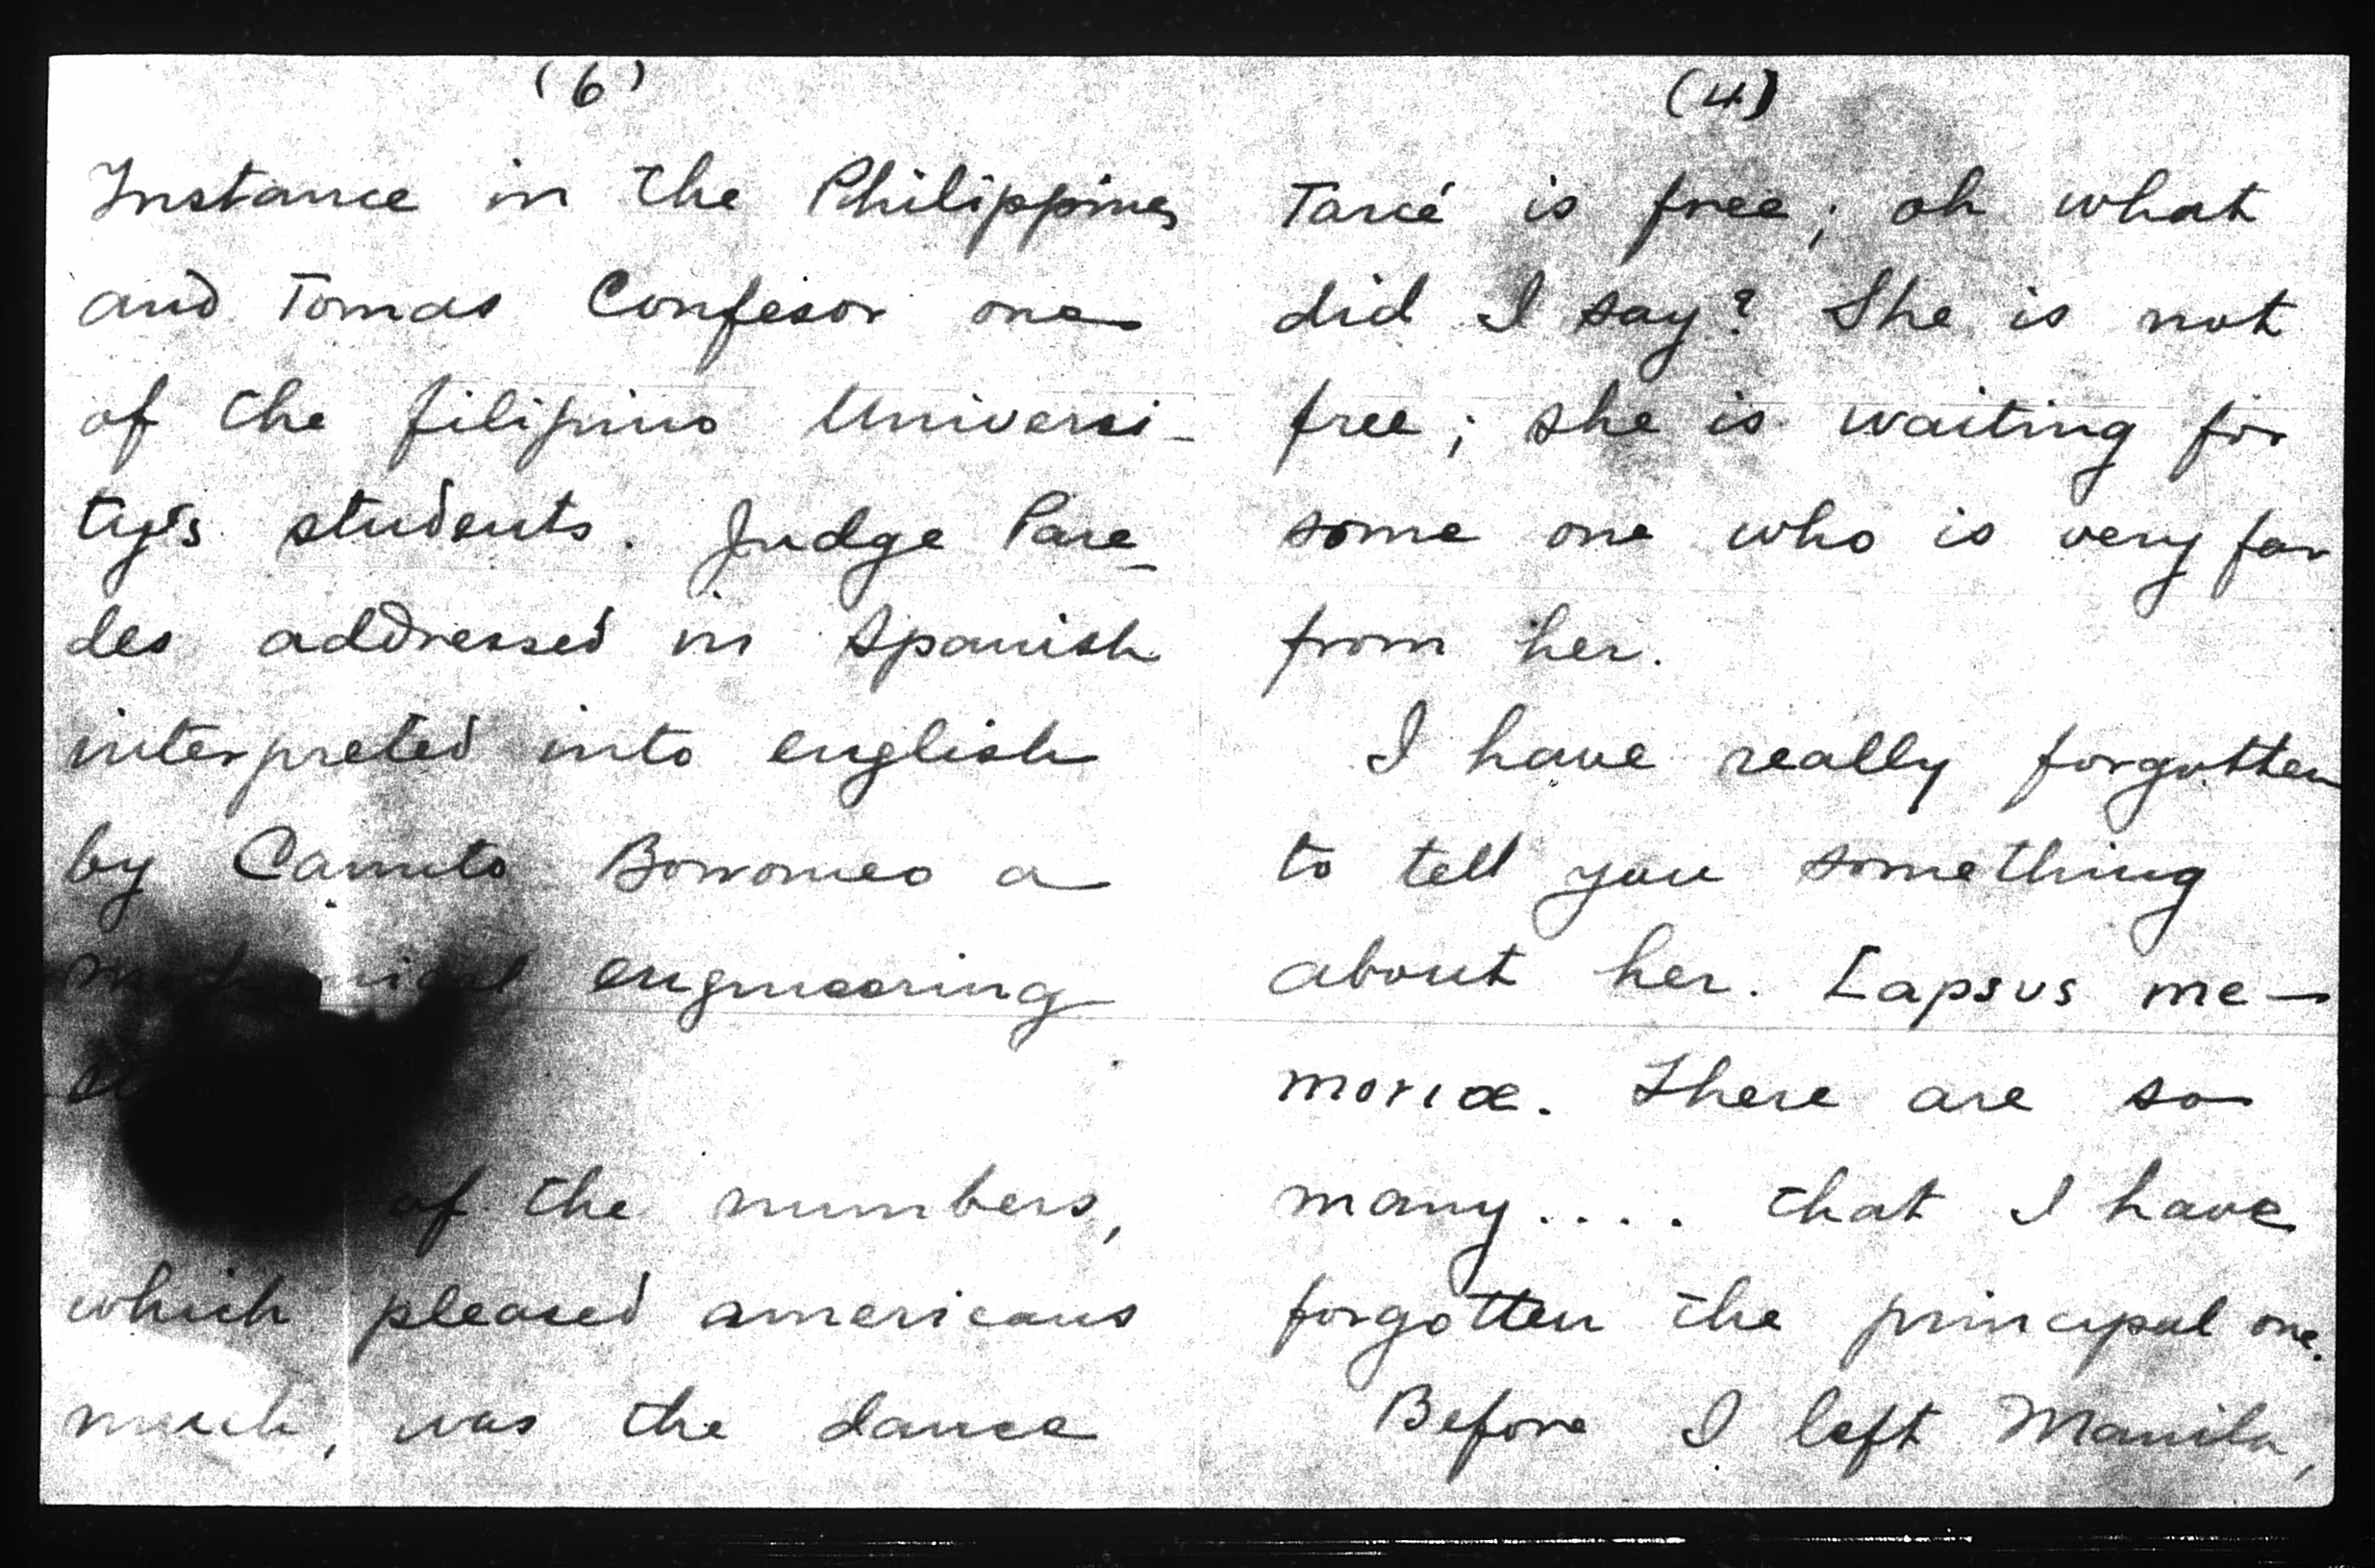 (6)
Instance in the Philippines
and Tomas Confesor one
of the filipino Universi-
ty's students. Judge Pare-
des addressed in Spanish
interpreted into english
by Canuto Borromeo a
mechanical engineering
of the numbers,
which pleased americans
much, was the dance
(4)
Tarcé is free; oh what
did I say? She is not
free; she is waiting for
some one who is very far
from her.
I have really forgotten
to tell you something
about her. Lapsus me-
moriæ. There are so
many.... that I have
forgotten the principal one.
Before I left Manila,